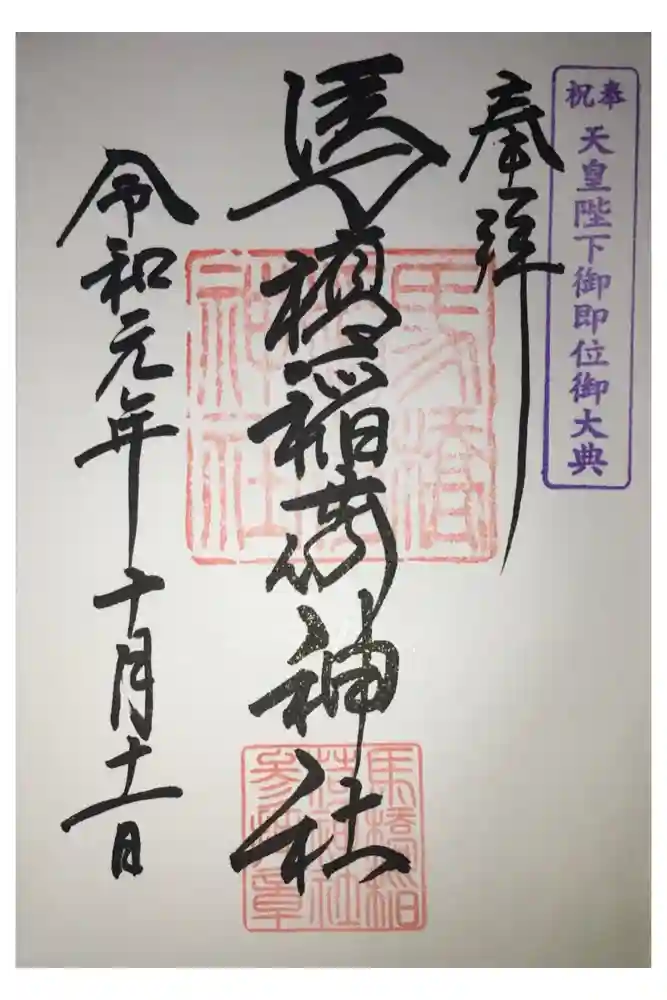 奉祝
天皇陛下御即位御大典
奉拝
馬橋稲荷神社
令和元年十月十一日
馬橋
神社
馬橋稲
荷神社
参拝之章